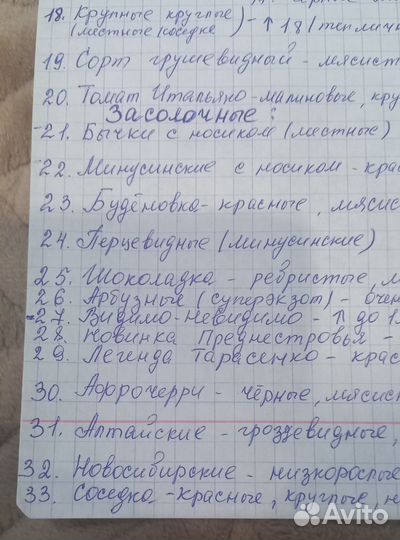 18. Крупные круглые
(местные соседке) - ↑ 18 (теплич
19. Сорт грушевидный - мясист
20. Томат Итальяно - малиновые, кру
Засолочные:
-21. Бычки с носиком (местные)
22. Минусинские с носиком - крас
23. Будёновка - красные, мясис
24. Перцевидные (минусинские)
25. Шоколадка - ребристые, м
26. Арбузные (суперэкзот) - очен
-27. Видимо-Невидимо - ↑ до 1
28. Новинка Преднестровья -
29. Легенда Тарасенко - крас
30. Афрочерри - чёрные, мясист
31. Алтайские - гроздевидные,
32. Новосибирские - низкорослые
33. Соседка - красные, круглые, н
Avito